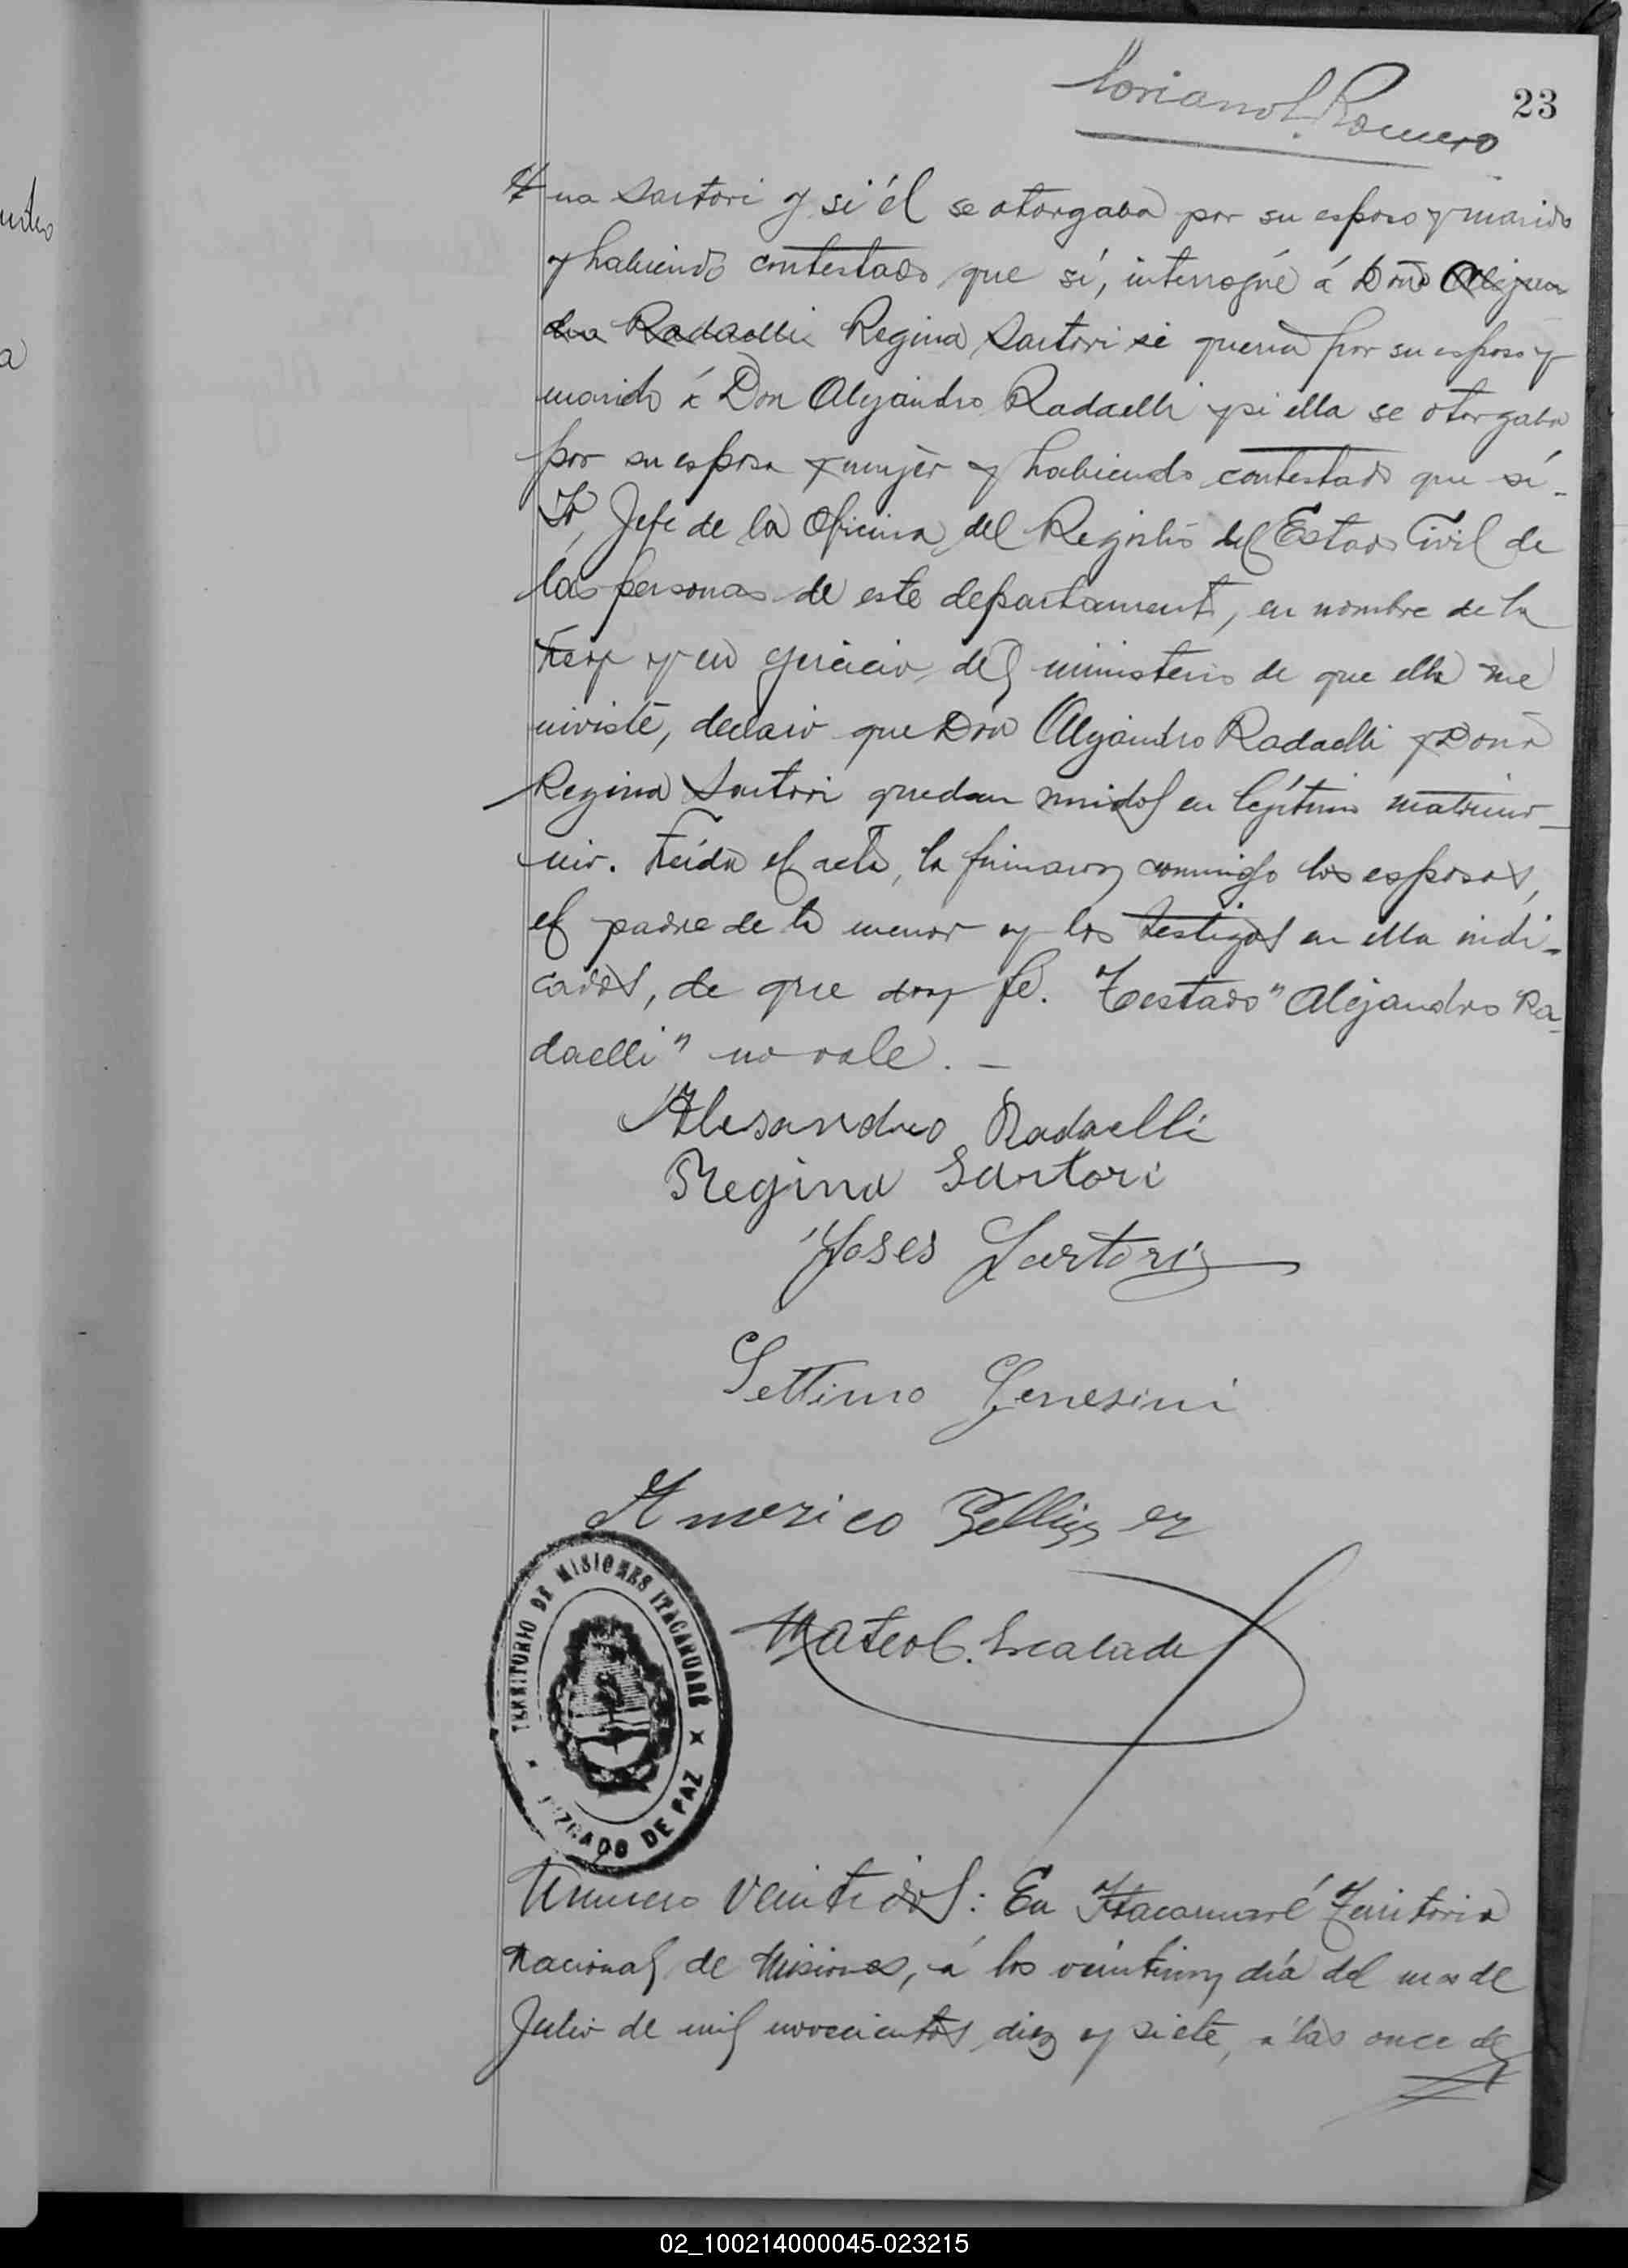 23
na Sartori y si él se otorgaba por su esposo y marido
y habiendo contestado que sí, interrogué á Doña Alejan
dro Radaelli Regina Sartori si quería por su esposo y
marido á Don Alejandro Radaelli y si ella se otorgaba
por su esposa y mujer y habiendo contestado que sí.
Yo, Jefe de la Oficina del Registro del Estado Civil de
las personas de este departamento, en nombre de la
Ley y en ejercicio del ministerio de que ella me
inviste, declaro que Don Alejandro Radaelli y Doña
Regina Sartori quedan unidos en legítimo matrimo-
nio. Leída el acta, la firmaron conmigo los esposos,
el padre de la menor y los testigos en ella indi-
cados, de que doy fé. Testado "Alejandro Ra-
daelli" no vale. —
Alesandro Radaelli
Regina Sartori
Sartori
Settimo Genesini
Americo
Mateo C. Escalada
TERRITORIO DE MISIONES ITACARUARÉ
JUZGADO DE PAZ
Número veintidos: En Itacaruaré Territorio
Nacional de Misiones, á los veintiun día del mes de
Julio de mil novecientos diez y siete, á las once de
02_100214000045-023215